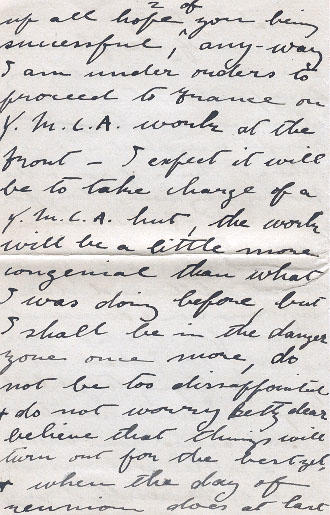 2
up all hope of you being
successful, any-way
I am under orders to
proceed to France on
Y.M.C.A. work at the
front - I expect it will
be to take charge of a
Y.M.C.A. hut, the work
will be a little more
congenial than what
I was doing before, but
I shall be in the danger
zone once more, do
not be too dissappointed
+ do not worry betty dear
believe that things will
turn out for the best yet
+ when the day of
reunion does at last